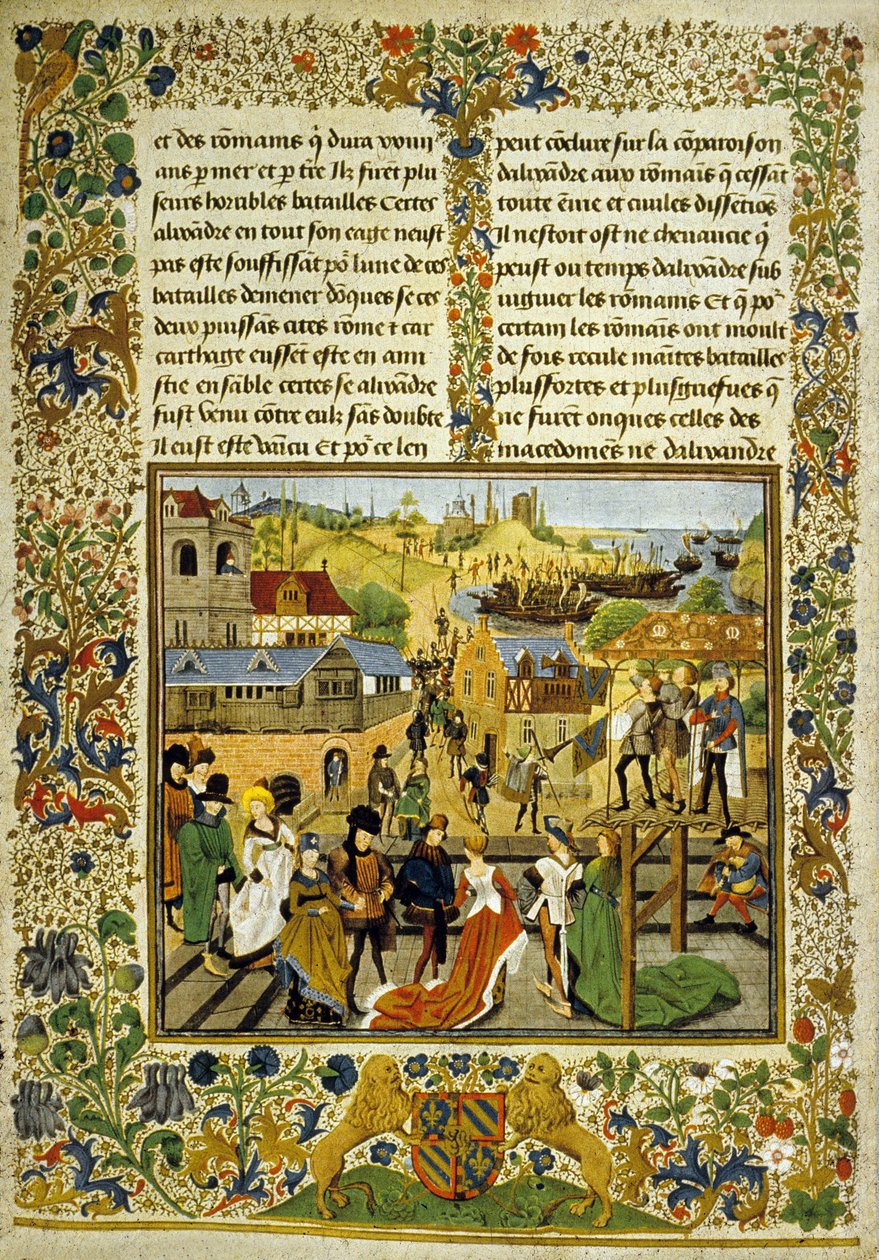 et des rōmains q̄ dura xviii
ans p̄ mer et p̄ tr̄e Ilz furēt plu
seurs horribles batailles Certes
alix̄adre en tout son eage neust
pas este souffissāt po᷑ lune de ces
batailles demener dōques se ces
deux puissās cites rōme et car
carthage eussēt este en ami
stie ensāble certes se alix̄adre
fust venu cōtre eulx sās doubte
il eust este vaīcu Et po᷑ ce len
peut cōclure sur la cōparoison
dalix̄adre aux rōmaīs q̄ cessāt
toute ēuie et ciuiles dissētiōs
Il nestoit ost ne cheuaucie q̄
peust ou temps dalix̄adre sub
uiguer les rōmains Et q̄ po᷑
certaīn les rōmaīs ont moult
de fois recule maītes batailles
plus fortes et plus griefues q̄
ne furēt onques celles des
macedoniēs ne dalix̄adre